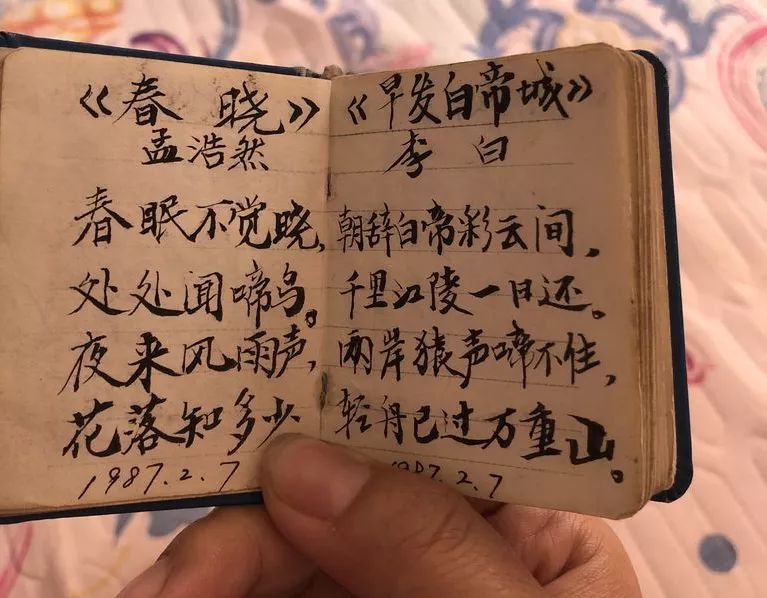 《春晓》
孟浩然
春眠不觉晓,
处处闻啼鸟。
夜来风雨声,
花落知多少
1987.2.7
《早发白帝城》
李白
朝辞白帝彩云间,
千里江陵一日还。
两岸猿声啼不住,
轻舟已过万重山。
1987.2.7